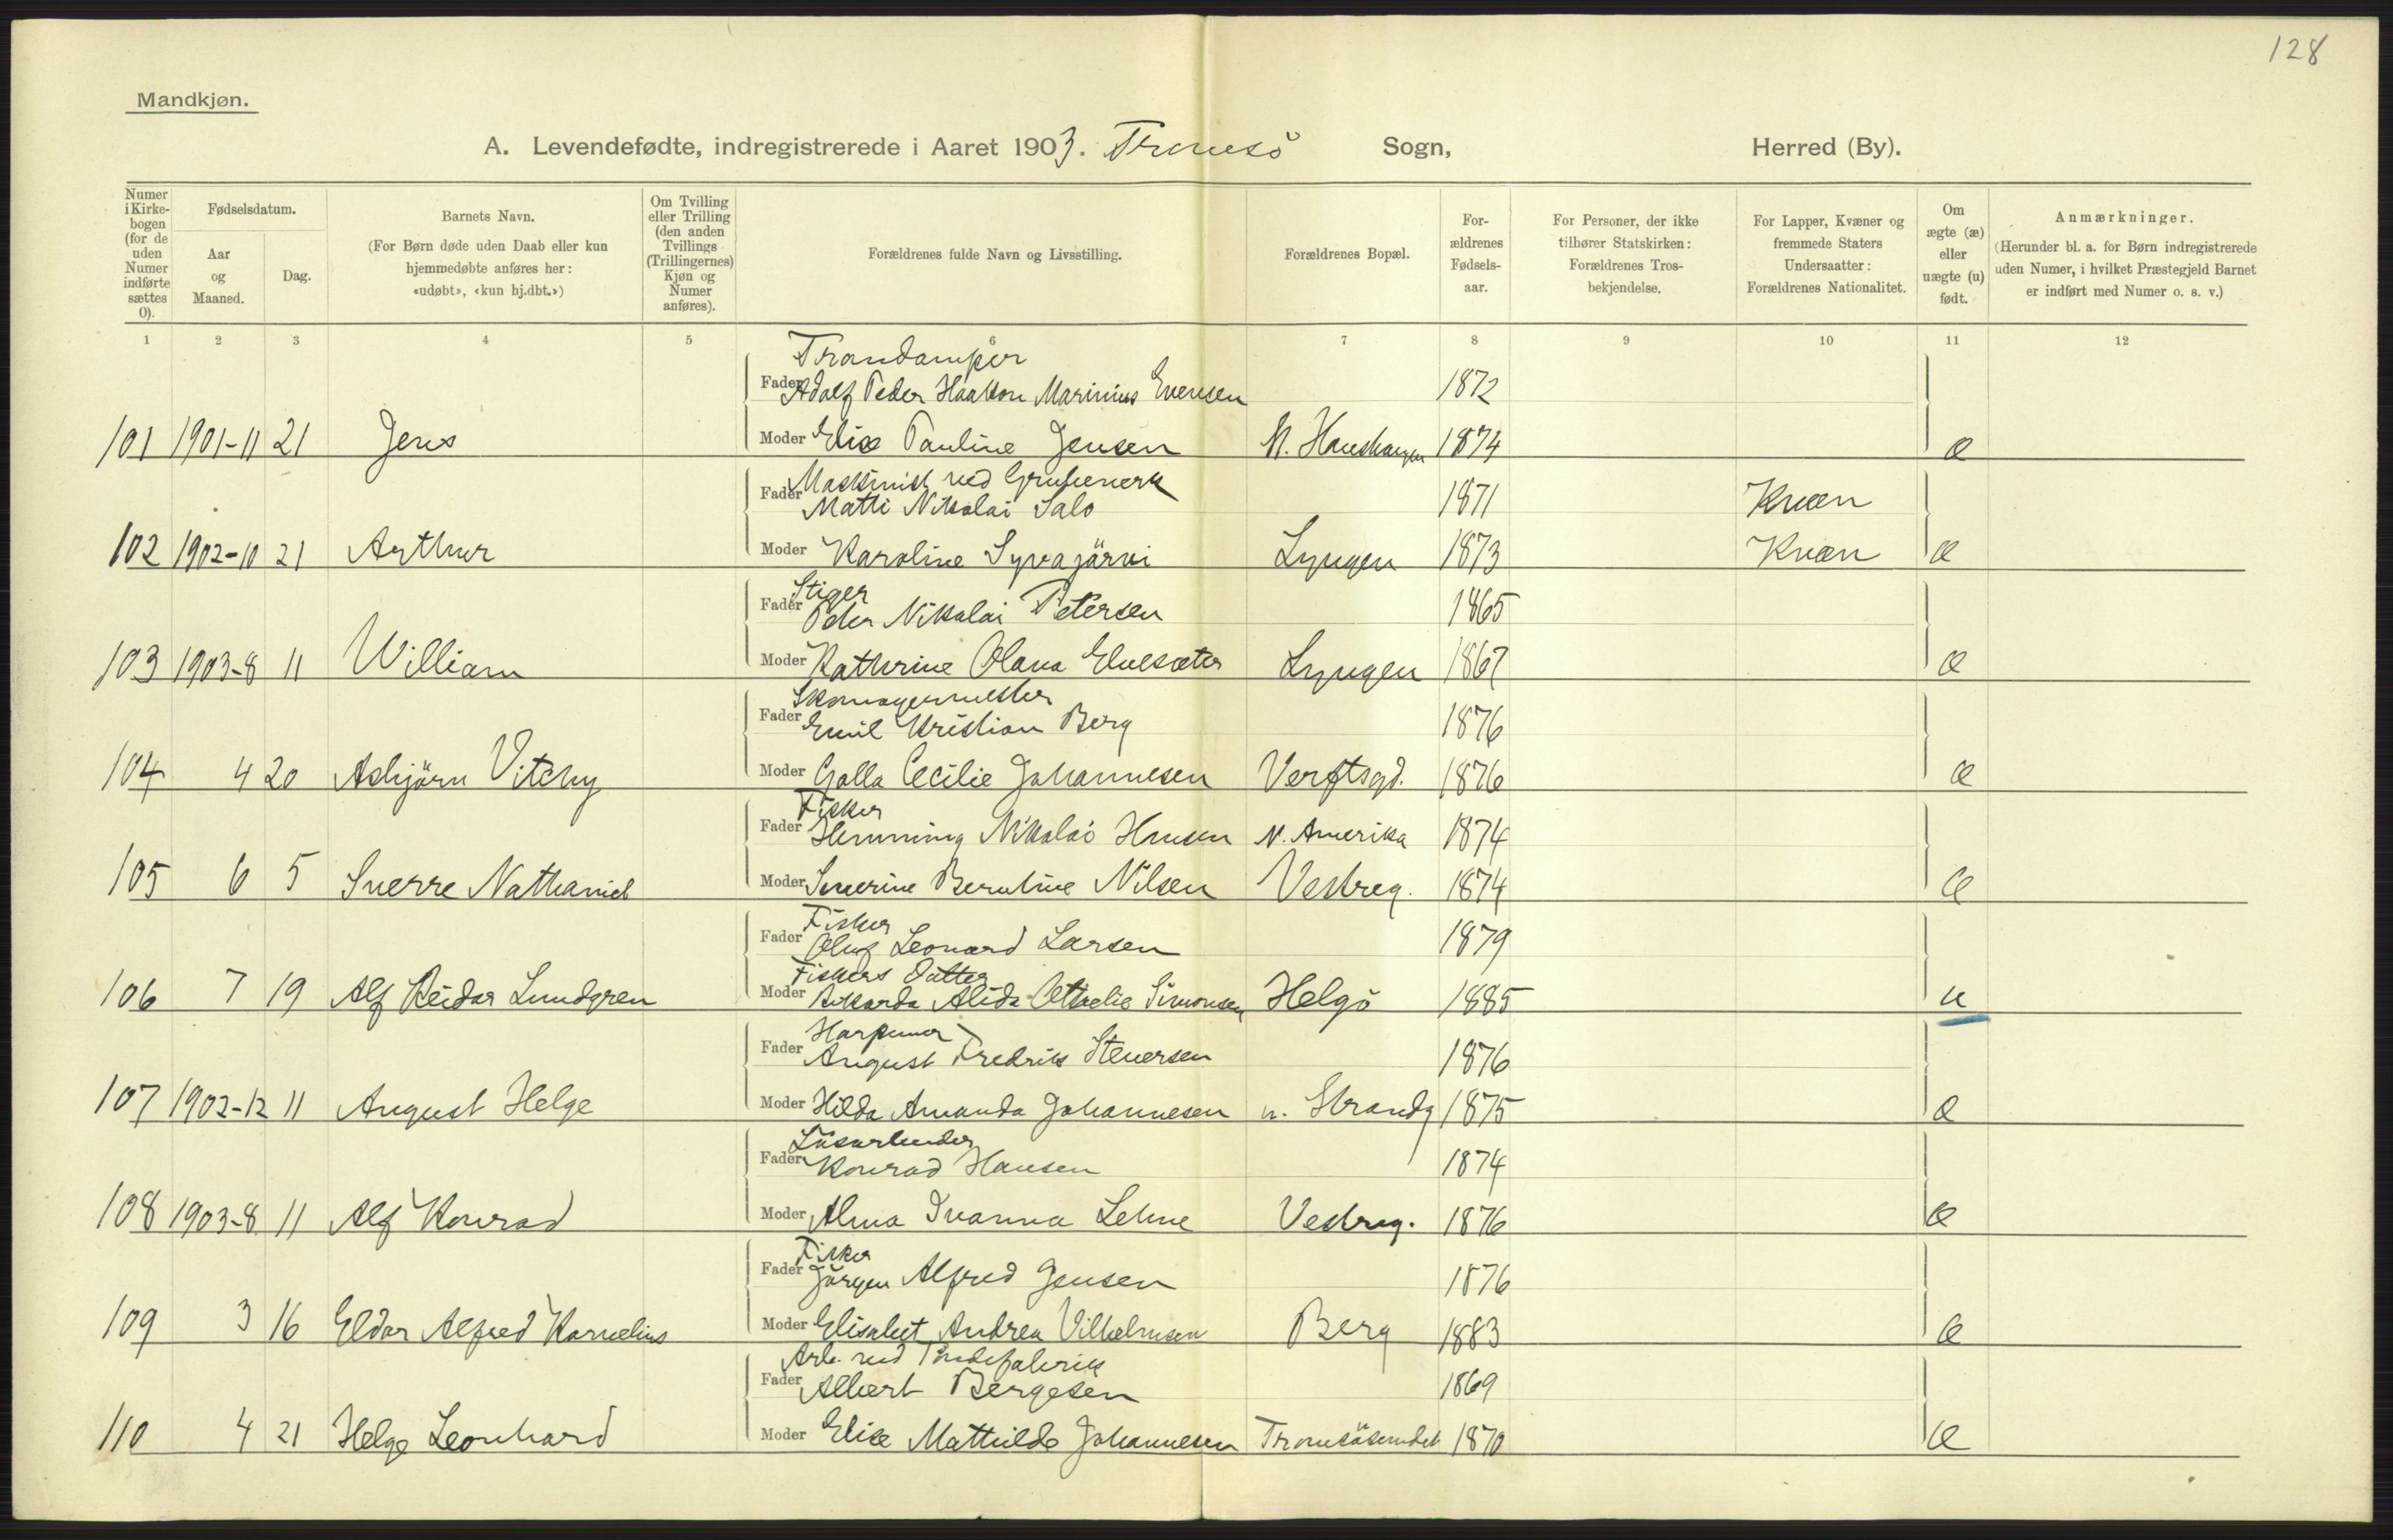 128
Mandkjøn.
A. Levendefødte, indregistrerede i Aaret 1903. Tromsö Sogn, Herred (By).
Numer i Kirkebogen (for de uden Numer indførte sættes 0).
Fødselsdatum.
Aar og Maaned.
Dag.
Barnets Navn.
(For Børn døde uden Daab eller kun hjemmedøbte anføres her: «udøbt», «kun hj.dbt.»)
Om Tvilling eller Trilling (den anden Tvillings (Trillingernes) Kjøn og Numer anføres).
Forældrenes fulde Navn og Livsstilling.
Forældrenes Bopæl.
Forældrenes Fødselsaar.
For Personer, der ikke tilhører Statskirken: Forældrenes Trosbekjendelse.
For Lapper, Kvæner og fremmede Staters Undersaatter: Forældrenes Nationalitet.
Om ægte (æ) eller uægte (u) født.
Anmærkninger.
(Herunder bl. a. for Børn indregistrerede uden Numer, i hvilket Præstegjeld Barnet er indført med Numer o. s. v.)
1 2 3 4 5 6 7 8 9 10 11 12
Trandamper
Fader Adolf Peder Haakon Marinius Evensen 1872
101 1901-11 21 Jens Moder Elise Pauline Jensen 1874 æ
Maskinist ved Grubeverk
Fader Matti Nikolai Salo 1871 Kvæn
102 1902-10 21 Arthur Moder Karoline Syvajärvi Lyngen 1873 Kvæn æ
Stiger
Fader Peder Nikolai Petersen 1865
103 1903-8 11 William Moder Kathrine Olava Elvesæter Lyngen 1867 æ
Skomagermester
Fader Emil Kristian Berg 1876
104 4 20 Asbjörn Vitchy Moder Galla Cecilie Johannesen Verftsgd. 1876 æ
Fisker
Fader Henning Nikolai Hansen N. Amerika 1874
105 6 5 Sverre Nathaniel Moder Severine Berntine Nilsen Vestreg. 1874 æ
Fisker
Fader Oluf Leonard Larsen 1879
Fiskers Datter
106 7 19 Alf Reidar Lundgren Moder Rikarda Alida Othelie Simonsen Helgö 1885 u
Harpuner
Fader August Fredrik Steversen 1876
107 1902-12 11 August Helge Moder Hilda Amanda Johannesen n. Strandg 1875 æ
Lösarbeider
Fader Konrad Hansen 1874
108 1903-8 11 Alf Konrad Moder Alma Ivanna Lehne Vestreg. 1876 æ
Fisker
Fader Jörgen Alfred Jensen 1876
109 3 16 Eldar Alfred Kornelius Moder Elisabet Andrea Vilhelmsen Berg 1883 æ
Arb. ved Töndefabrik
Fader Albert Bergesen 1869
110 4 21 Helge Leonhard Moder Elise Mathilde Johannesen Tromsösundet 1870 æ